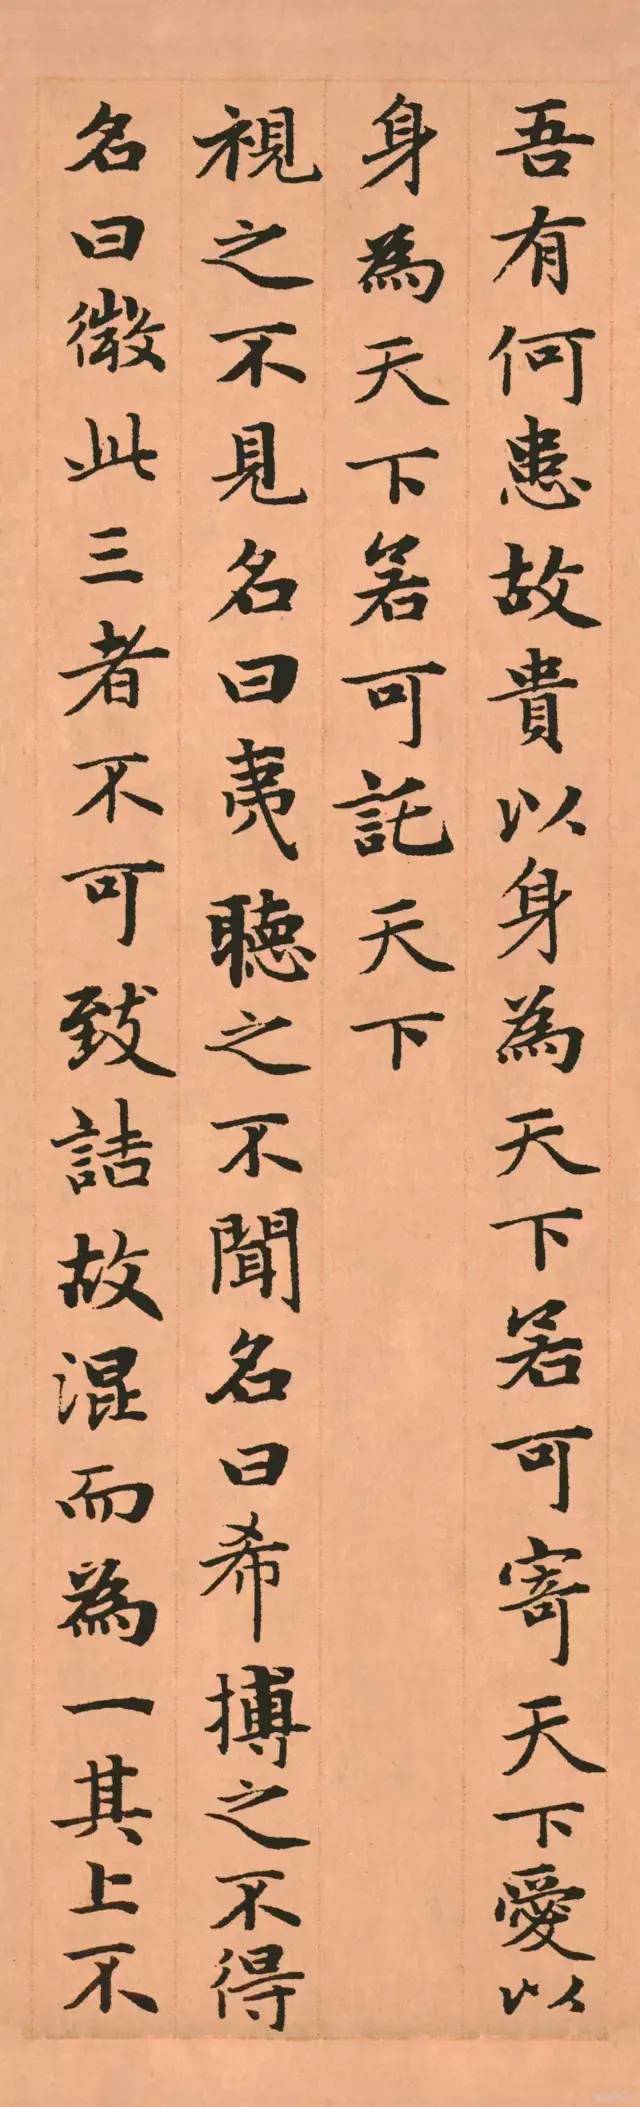 吾有何患故貴以身為天下若可寄天下愛以
身為天下若可託天下
視之不見名曰夷聽之不聞名曰希搏之不得
名曰微此三者不可致詰故混而為一其上不